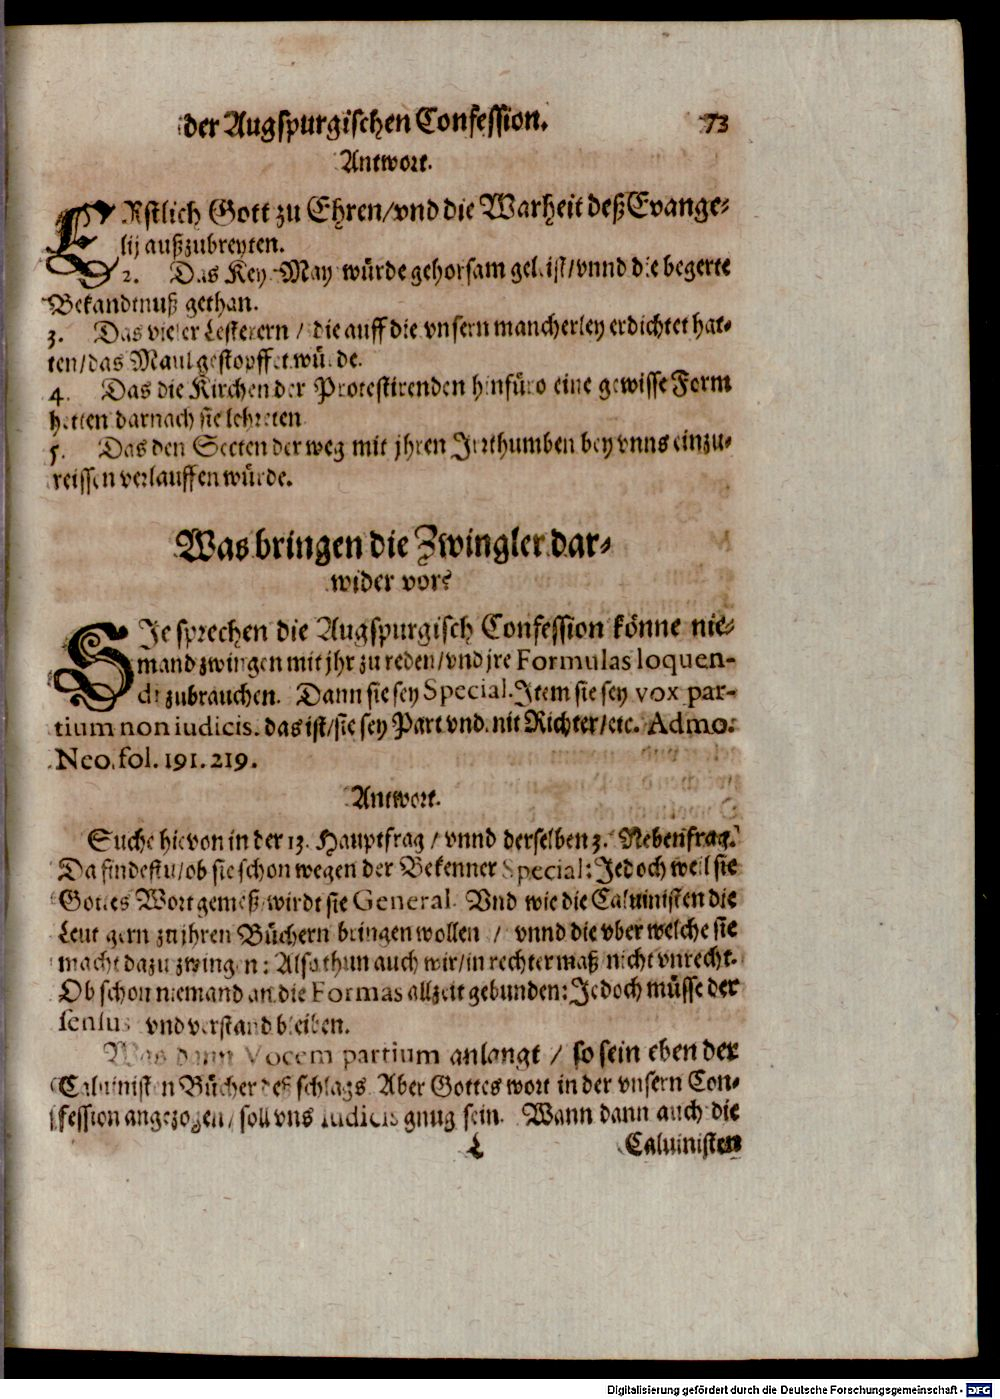 der Augspurgischen Confession. 73
Antwort.
ERstlich Gott zu Ehren/vnd die Warheit deß Evange-
lij außzubreyten.
2. Das Key. May würde gehorsam geleist/vnnd die begerte
Bekandtnuß gethan.
3. Das vieler Lesterern / die auff die vnsern mancherley erdichtet hat-
ten/das Maul gestopffet würde.
4. Das die Kirchen der Protestirenden hinfüro eine gewisse Form
hetten darnach sie lehreten
5. Das den Secten der weg mit jhren Irrthumben bey vnns einzu-
reissen verlauffen würde.
Was bringen die Zwingler dar-
wider vor?
SJe sprechen die Augspurgisch Confession könne nie-
mand zwingen mit jhr zu reden/vnd jre Formulas loquen-
di zubrauchen. Dann sie sey Special. Item sie sey vox par-
tium non iudicis. das ist/sie sey Part vnd nit Richter/etc. Admo.
Neo. fol. 191. 219.
Antwort.
Suche hievon in der 13. Hauptfrag / vnnd derselben 3. Nebenfrag.
Da findestu/ob sie schon wegen der Bekenner Special: Jedoch weil sie
Gottes Wort gemeß/wirdt sie General. Vnd wie die Caluinisten die
Leut gern zu jhren Büchern bringen wollen / vnnd die vber welche sie
macht dazu zwingen: Also thun auch wir/in rechter maß/nicht vnrecht.
Ob schon niemand an die Formas allzeit gebunden: Jedoch müsse der
sensus vnd verstand bleiben.
Was dann Vocem partium anlangt / so sein eben der
Caluinisten Bücher deß schlags. Aber Gottes wort in der vnsern Con-
fession angezogen/ soll vns Iudicis gnug sein. Wann dann auch die
L Caluinisten
Digitalisierung gefördert durch die Deutsche Forschungsgemeinschaft - DFG